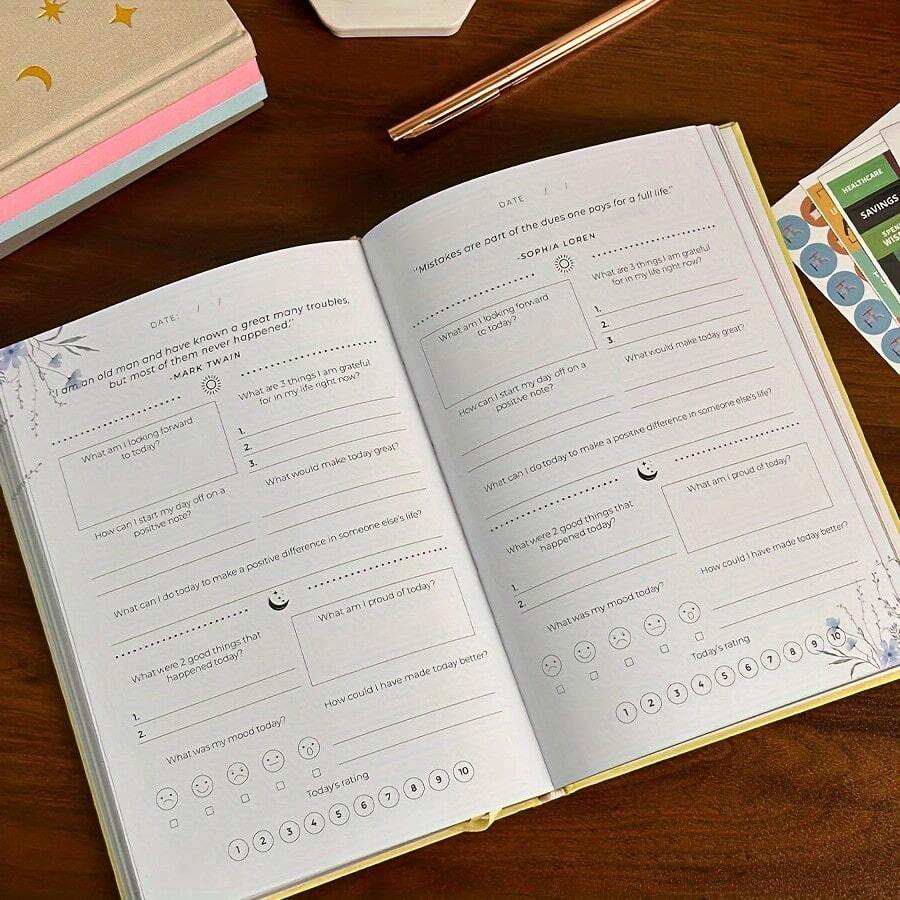 DATE: / /
"I am an old man and have known a great many troubles,
but most of them never happened."
-MARK TWAIN
What am I looking forward
to today?
What are 3 things I am grateful
for in my life right now?
1.
2.
3.
How can I start my day off on a
positive note?
What would make today great?
What can I do today to make a positive difference in someone else's life?
What were 2 good things that
happened today?
1.
2.
What am I proud of today?
How could I have made today better?
What was my mood today?
Today's rating
1 2 3 4 5 6 7 8 9 10
DATE / /
"Mistakes are part of the dues one pays for a full life."
-SOPHIA LOREN
What am I looking forward
to today?
What are 3 things I am grateful
for in my life right now?
1.
2.
3.
How can I start my day off on a
positive note?
What would make today great?
What can I do today to make a positive difference in someone else's life?
What were 2 good things that
happened today?
1.
2.
What am I proud of today?
How could I have made today better?
What was my mood today?
Today's rating
1 2 3 4 5 6 7 8 9 10
HEALTHCARE
SAVINGS